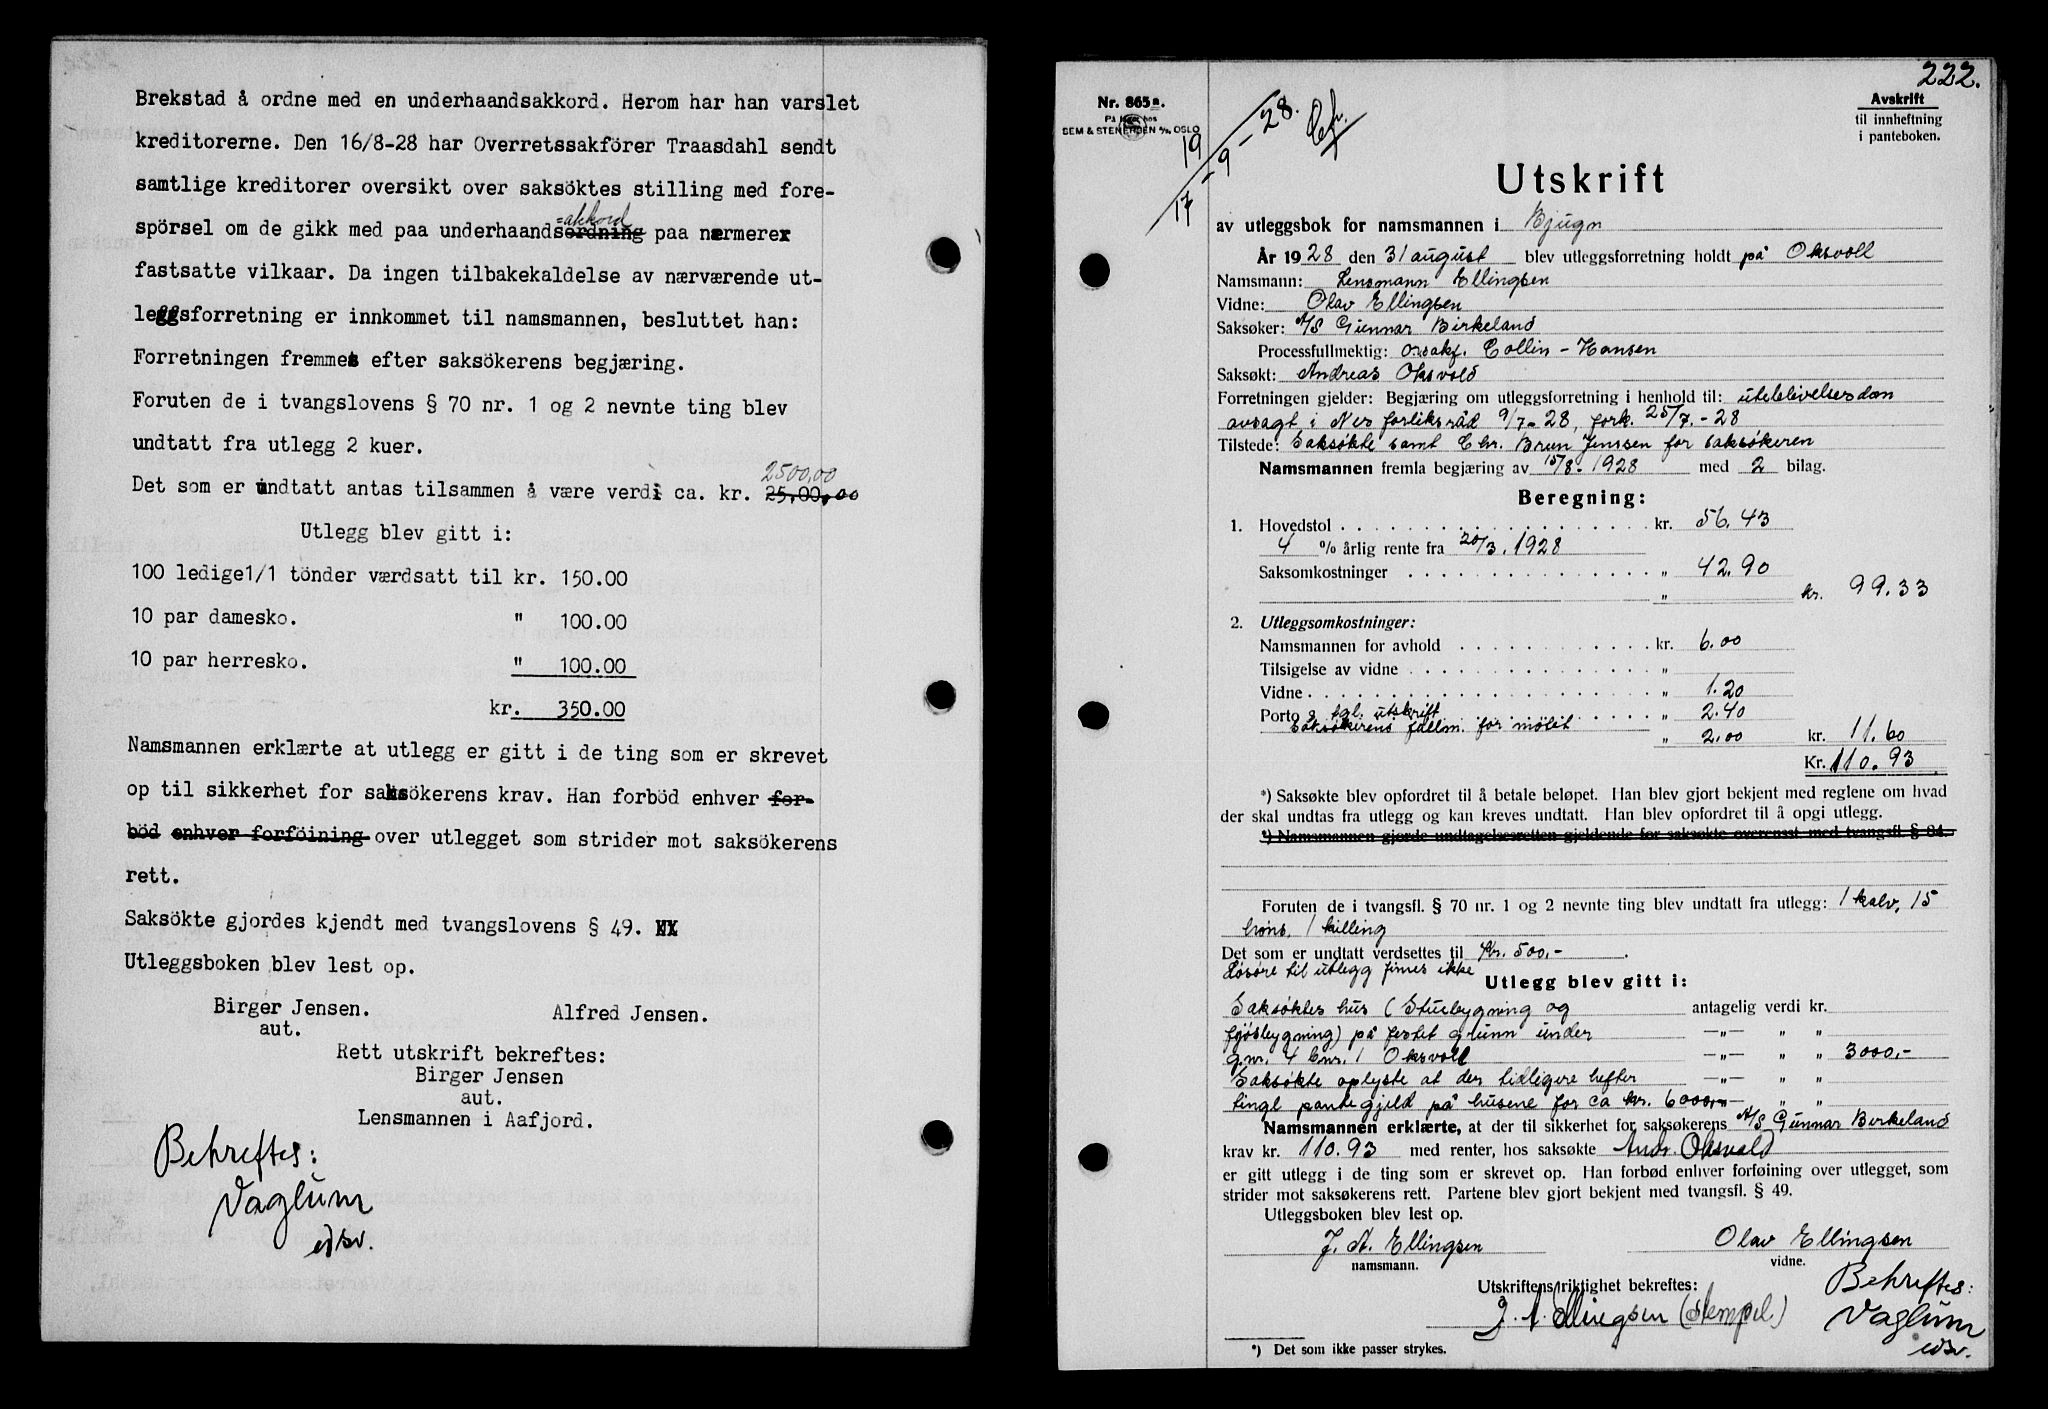 Brekstad å ordne med en underhaandsakkord. Herom har han varslet
kreditorerne. Den 16/8-28 har Overretssakförer Traasdahl sendt
samtlige kreditorer oversikt over saksöktes stilling med fore-
=akkord
spörsel om de gikk med paa underhaandsordning paa nærmere
fastsatte vilkaar. Da ingen tilbakekaldelse av nærværende ut-
leggsforretning er innkommet til namsmannen, besluttet han:
Forretningen fremmes efter saksökerens begjæring.
Foruten de i tvangslovens § 70 nr. 1 og 2 nevnte ting blev
undtatt fra utlegg 2 kuer.
2500,00
Det som er undtatt antas tilsammen å være verdi ca. kr. 25,00,00
Utlegg blev gitt i:
100 ledige1/1 tönder værdsatt til kr. 150.00
10 par damesko. " 100.00
10 par herresko. " 100.00
kr. 350.00
Namsmannen erklærte at utlegg er gitt i de ting som er skrevet
op til sikkerhet for saksökerens krav. Han forböd enhver for-
böd enhver forföining over utlegget som strider mot saksökerens
rett.
Saksökte gjordes kjendt med tvangslovens § 49. XX
Utleggsboken blev lest op.
Birger Jensen. Alfred Jensen.
aut.
Rett utskrift bekreftes:
Birger Jensen
aut.
Lensmannen i Aafjord.
Bekreftes:
Vaglum
edsv.
222.
Nr. 865a.
På lager hos
SEM & STENERSEN A/S, OSLO
19
17 - 9 - 28.
Avskrift
til innheftning
i panteboken.
Utskrift
av utleggsbok for namsmannen i Bjugn
År 1928 den 31 august blev utleggsforretning holdt på Oksvoll
Namsmann: Lensmann Ellingsen
Vidne: Olav Ellingsen
Saksøker: A/S Gunnar Birkeland
Processfullmektig: o.r.sakf. Collin-Hansen
Saksøkt: Andreas Oksvold
Forretningen gjelder: Begjæring om utleggsforretning i henhold til: uteblivelsesdom
avsagt i Nes forliksråd 9/7-28, fork. 25/7.-28
Tilstede: Saksøkte samt Chr. Brun Jenssen for saksøkeren
Namsmannen fremla begjæring av 15/8.1928 med 2 bilag.
Beregning:
1. Hovedstol kr. 56.43
4 % årlig rente fra 20/3.1928
Saksomkostninger " 42.90
" kr. 99.33
2. Utleggsomkostninger:
Namsmannen for avhold kr. 6.00
Tilsigelse av vidne "
Vidne " 1.20
Porto & tgl. utskrift " 2.40
Saksøkerens fullm. for møtet " 2.00 kr. 11.60
Kr. 110.93
*) Saksøkte blev opfordret til å betale beløpet. Han blev gjort bekjent med reglene om hvad
der skal undtas fra utlegg og kan kreves undtatt. Han blev opfordret til å opgi utlegg.
*) Namsmannen gjorde undtagelsesretten gjeldende for saksøkte overensst. med tvangsfl. § 84.
Foruten de i tvangsfl. § 70 nr. 1 og 2 nevnte ting blev undtatt fra utlegg: 1 kalv, 15
høns, 1 killing
Det som er undtatt verdsettes til Kr. 500,-
Løsøre til utlegg finnes ikke
Utlegg blev gitt i:
Saksøktes hus (Stuebygning og antagelig verdi kr.
fjøsbygning) på festet grunn under —"— " "
gnr. 4 bnr. 1 Oksvoll —"— " " 3000,-
Saksøkte oplyste at der tidligere hefter —"— " "
tingl pantegjeld på husene for ca kr. 6000,- —"— " "
Namsmannen erklærte, at der til sikkerhet for saksøkerens A/S Gunnar Birkeland
krav kr. 110.93 med renter, hos saksøkte Andr. Oksvold
er gitt utlegg i de ting som er skrevet op. Han forbød enhver forføining over utlegget, som
strider mot saksøkerens rett. Partene blev gjort bekjent med tvangsfl. § 49.
Utleggsboken blev lest op.
J. A. Ellingsen Olav Ellingsen
namsmann. vidne.
Utskriftens riktighet bekreftes:
J. A. Ellingsen (stempel.)
Bekreftes:
Vaglum
edsv.
*) Det som ikke passer strykes.